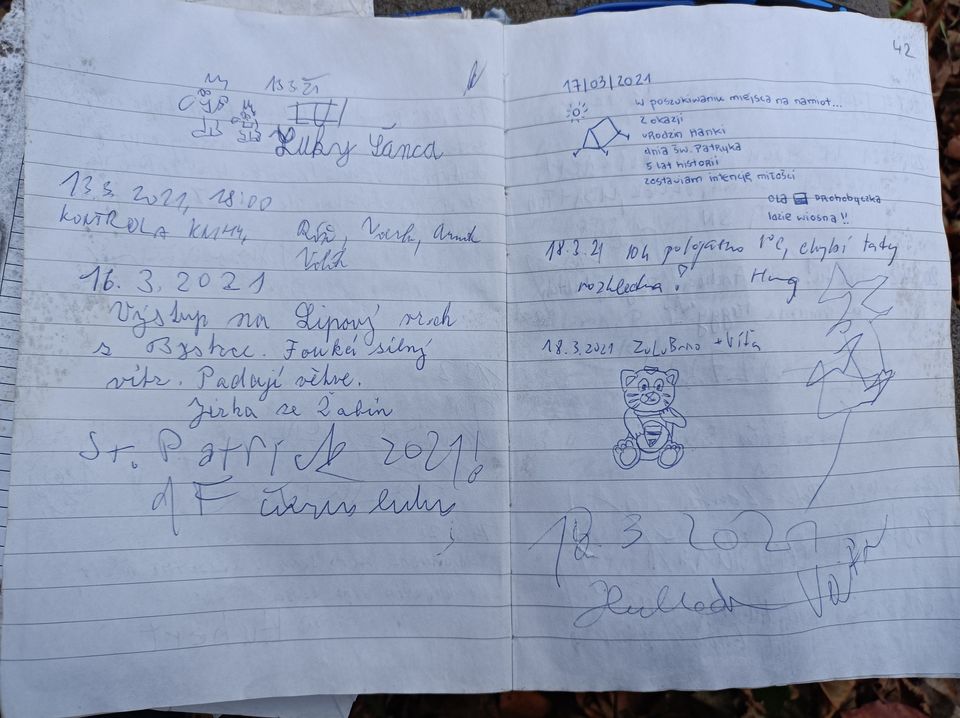 13.3.21
Luky Šanca
13.3.2021, 18:00
KONTROLA
16.3.2021
Výstup na Lipový vrch
z Bystrce. Fouká silný
vítr. Padají větve.
Jirka ze Žabin
St. Patrick 2021!
42
17/03/2021
W poszukiwaniu miejsca na namiot...
z okazji
urodzin Hanki
dnia św. Patryka
5 lat historii
zostawiam intencję miłości
Ola Drohobyczka
idzie wiosna!!
18.3.21 10h polojasno 1°C, chybí tady
rozhledna!
18.3.2021 ZuluBrno + Víťa
18.3.2021